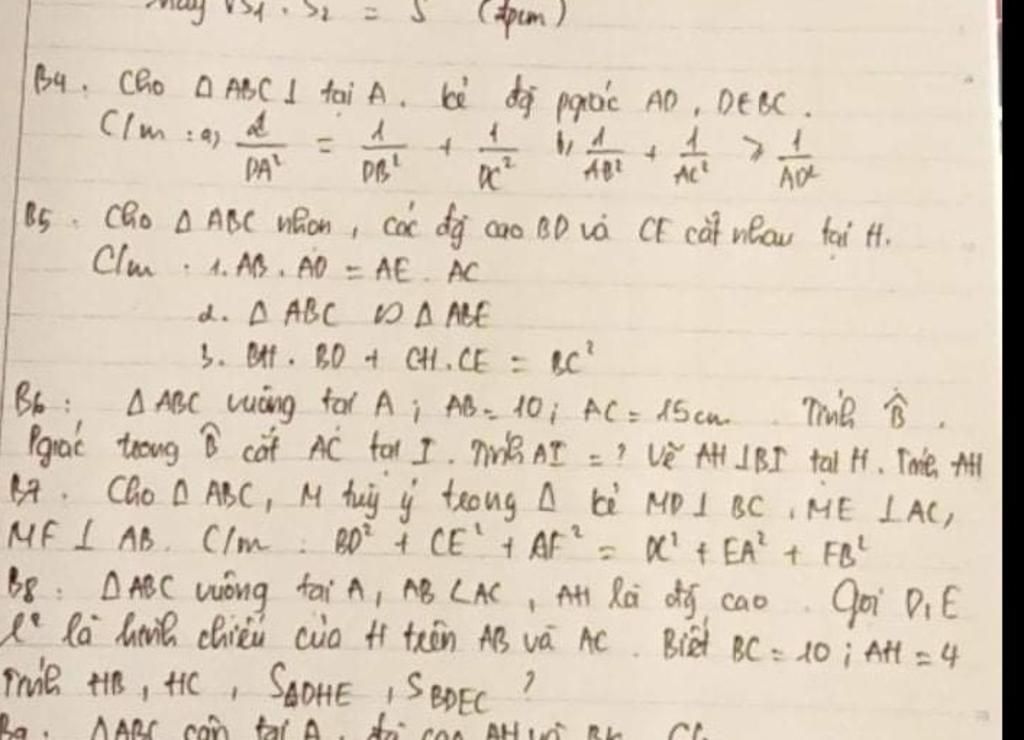 hay √S1 . S2 = S (đpcm)
B4. Cho Δ ABC ⊥ tại A. kẻ đg pgiác AD, D∈BC.
C/m : a, 2/DA² = 1/DB² + 1/DC² b, 1/AB² + 1/AC² > 1/AD²
B5. Cho Δ ABC nhọn, các đg cao BD và CE cắt nhau tại H.
C/m . 1. AB . AD = AE . AC
2. Δ ABC ∽ Δ ABE
3. BH . BD + CH.CE = BC²
B6 : Δ ABC vuông tại A ; AB = 10 ; AC = 15cm . Tính B̂ .
Pgiác trong B̂ cắt AC tại I . Tính AI = ? Vẽ AH ⊥ BI tại H. Tính AH
B7. Cho Δ ABC, M tuỳ ý trong Δ kẻ MD ⊥ BC, ME ⊥ AC,
MF ⊥ AB. C/m : BD² + CE² + AF² = DC² + EA² + FB²
B8 : Δ ABC vuông tại A, AB < AC, AH là đg cao . Gọi D, E
lº là hình chiếu của H trên AB và AC . Biết BC = 10 ; AH = 4
Tính HB, HC, SADHE, SBDEC ?
B9. ΔABC cân tại A, đg cao AH và BK.